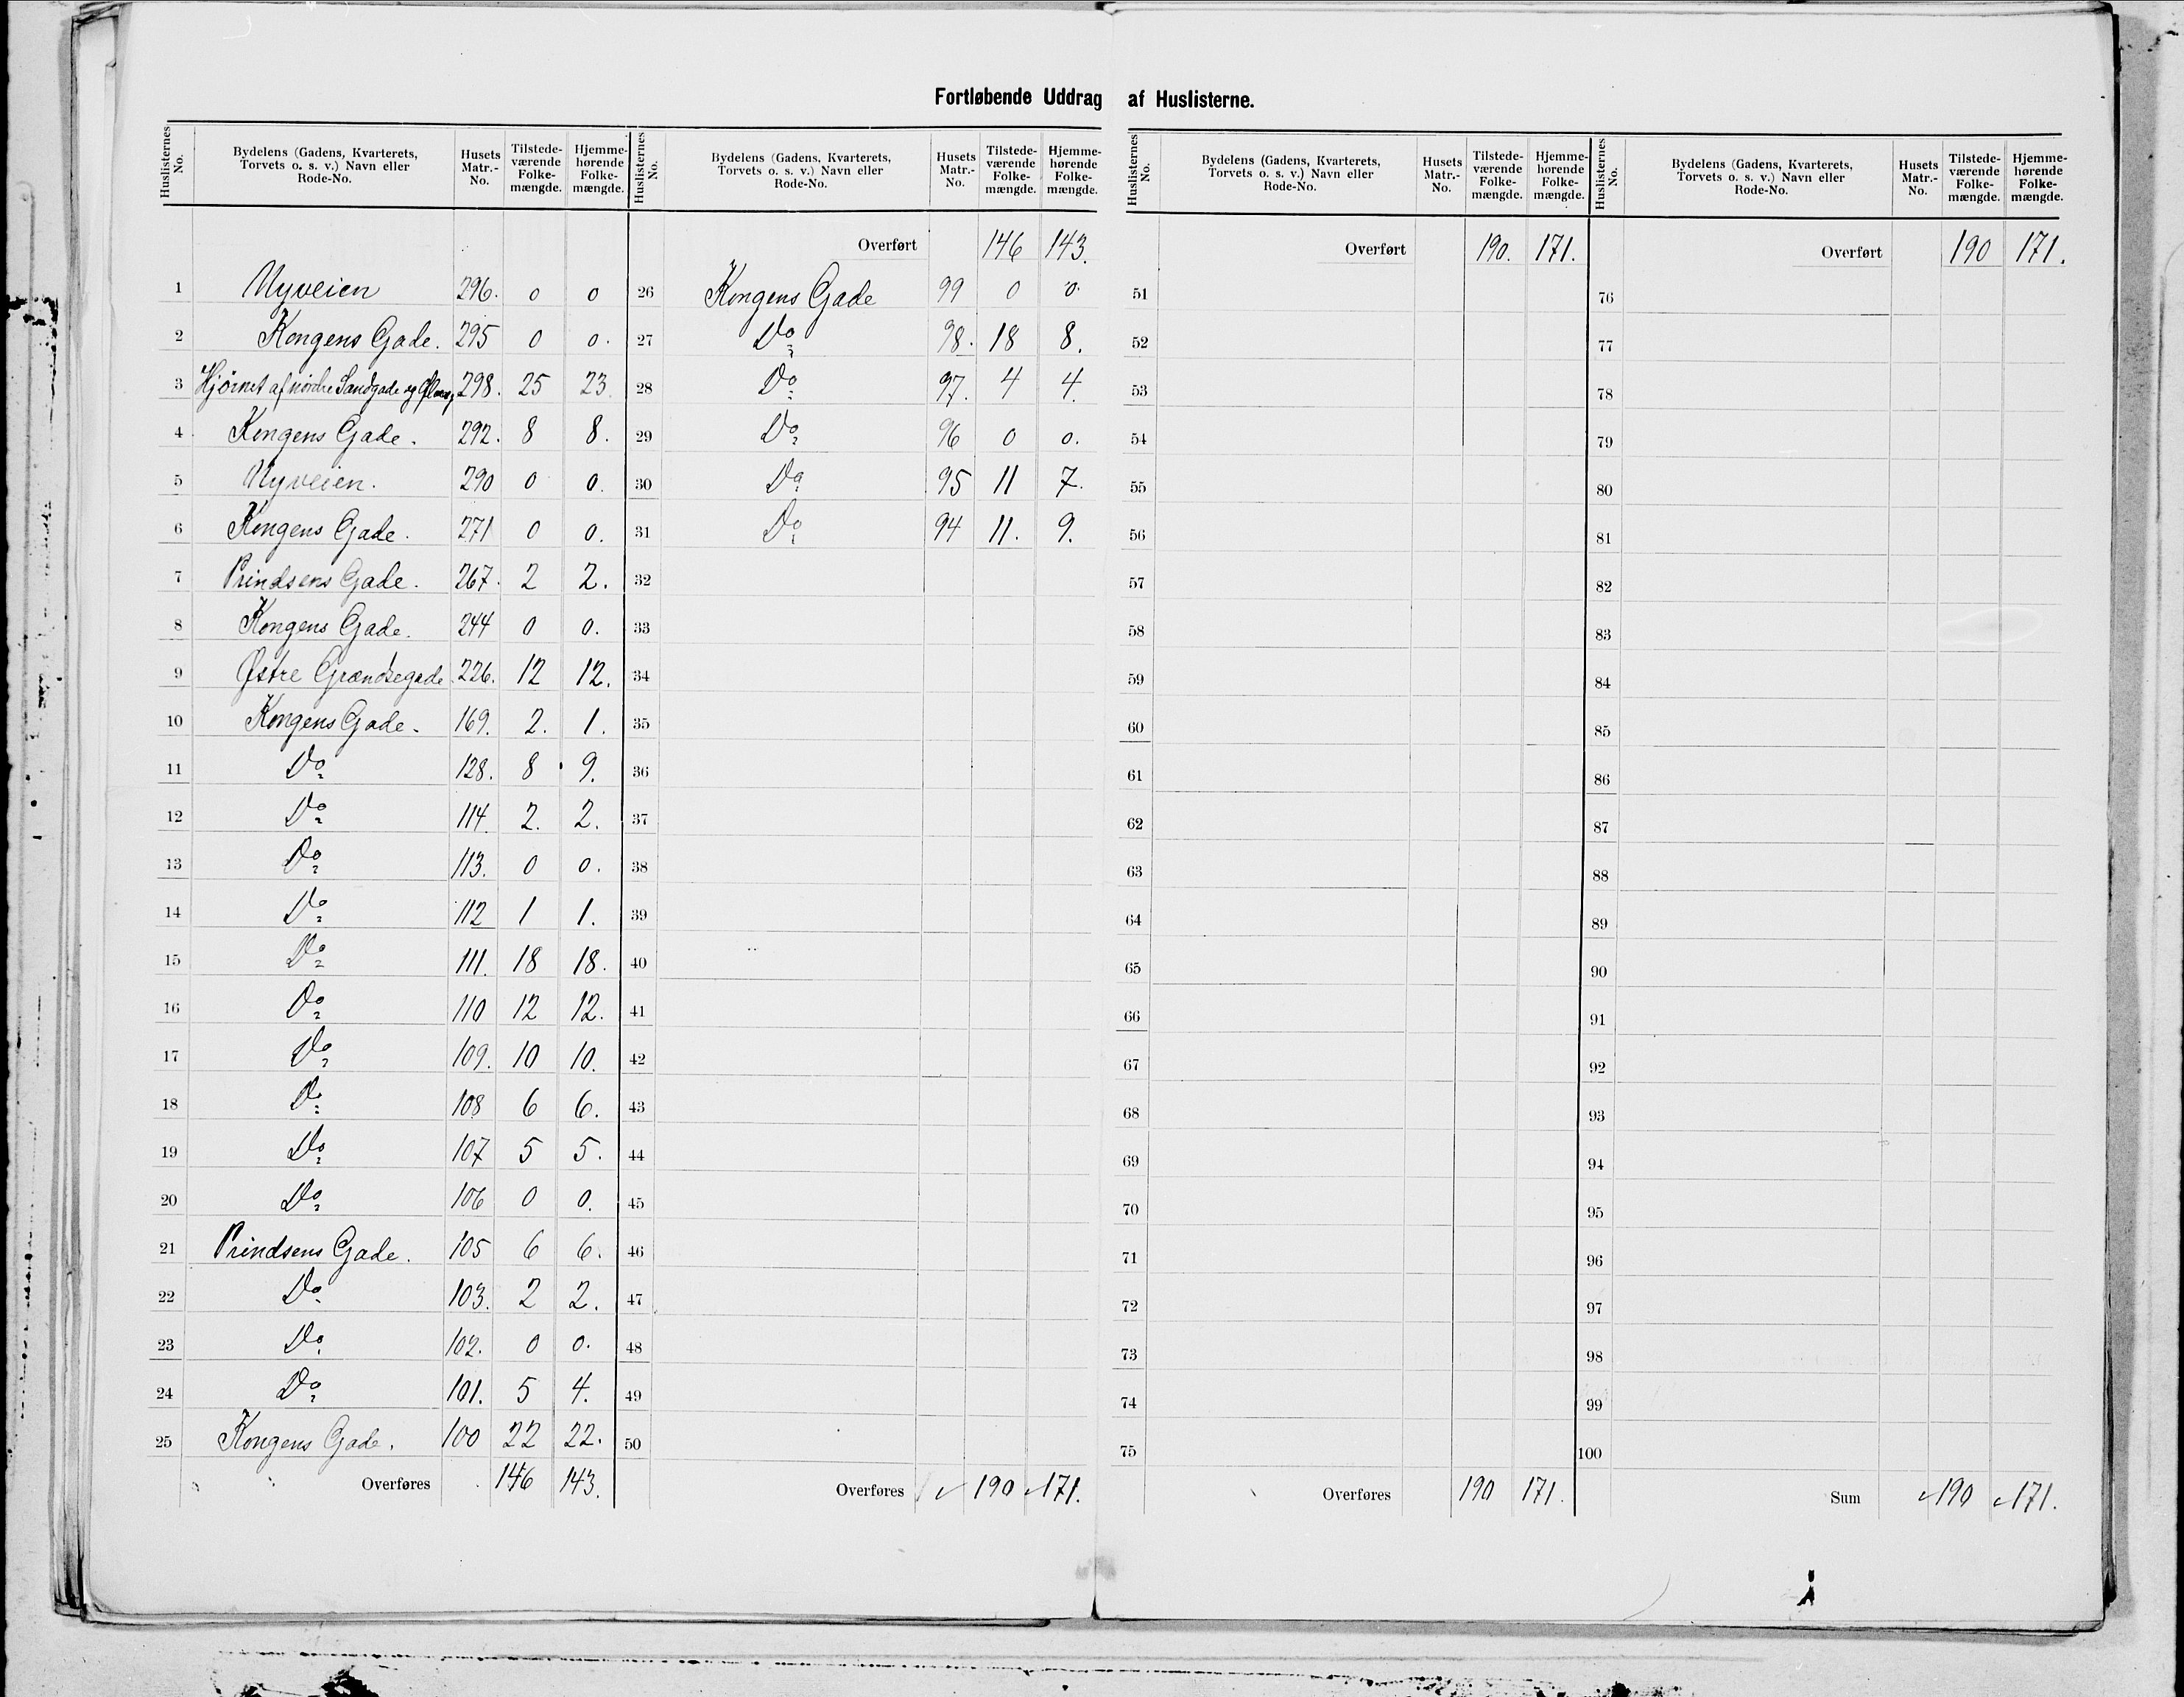 Fortløbende Uddrag af Huslisterne.
Huslisternes No. | Bydelens (Gadens, Kvarterets, Torvets o. s. v.) Navn eller Rode-No. | Husets Matr.-No. | Tilstede-værende Folke-mængde. | Hjemme-hørende Folke-mængde.
1 Nyveien 296. 0 0
2 Kongens Gade. 295 0 0.
3 Hjörnet af nördre Sandgade og 298. 25 23.
4 Kongens Gade. 292. 8 8.
5 Nyveien. 290 0 0.
6 Kongens Gade. 271 0 0.
7 Prindsens Gade. 267. 2 2.
8 Kongens Gade. 244 0 0.
9 Østre Grændsegade. 226. 12 12.
10 Kongens Gade. 169. 2. 1.
11 Do 128. 8 9.
12 Do 114. 2. 2.
13 Do 113. 0 0.
14 Do 112 1 1.
15 Do 111. 18 18.
16 Do 110 12 12.
17 Do 109. 10 10.
18 Do 108 6 6.
19 Do 107 5 5.
20 Do 106 0 0.
21 Prindsens Gade. 105 6 6.
22 Do 103. 2 2.
23 Do 102. 0 0.
24 Do 101. 5 4.
25 Kongens Gade. 100 22 22.
Overføres 146 143.
Huslisternes No. | Bydelens (Gadens, Kvarterets, Torvets o. s. v.) Navn eller Rode-No. | Husets Matr.-No. | Tilstede-værende Folke-mængde. | Hjemme-hørende Folke-mængde.
Overført 146 143.
26 Kongens Gade 99 0 0.
27 Do 98. 18 8.
28 Do 97. 4 4.
29 Do 96 0 0.
30 Do 95 11 7.
31 Do 94 11. 9.
32
33
34
35
36
37
38
39
40
41
42
43
44
45
46
47
48
49
50
Overføres ✓ 190 ✓ 171.
Huslisternes No. | Bydelens (Gadens, Kvarterets, Torvets o. s. v.) Navn eller Rode-No. | Husets Matr.-No. | Tilstede-værende Folke-mængde. | Hjemme-hørende Folke-mængde.
Overført 190. 171.
51
52
53
54
55
56
57
58
59
60
61
62
63
64
65
66
67
68
69
70
71
72
73
74
75
Overføres 190 171.
Huslisternes No. | Bydelens (Gadens, Kvarterets, Torvets o. s. v.) Navn eller Rode-No. | Husets Matr.-No. | Tilstede-værende Folke-mængde. | Hjemme-hørende Folke-mængde.
Overført 190 171.
76
77
78
79
80
81
82
83
84
85
86
87
88
89
90
91
92
93
94
95
96
97
98
99
100
Sum ✓ 190 ✓ 171.